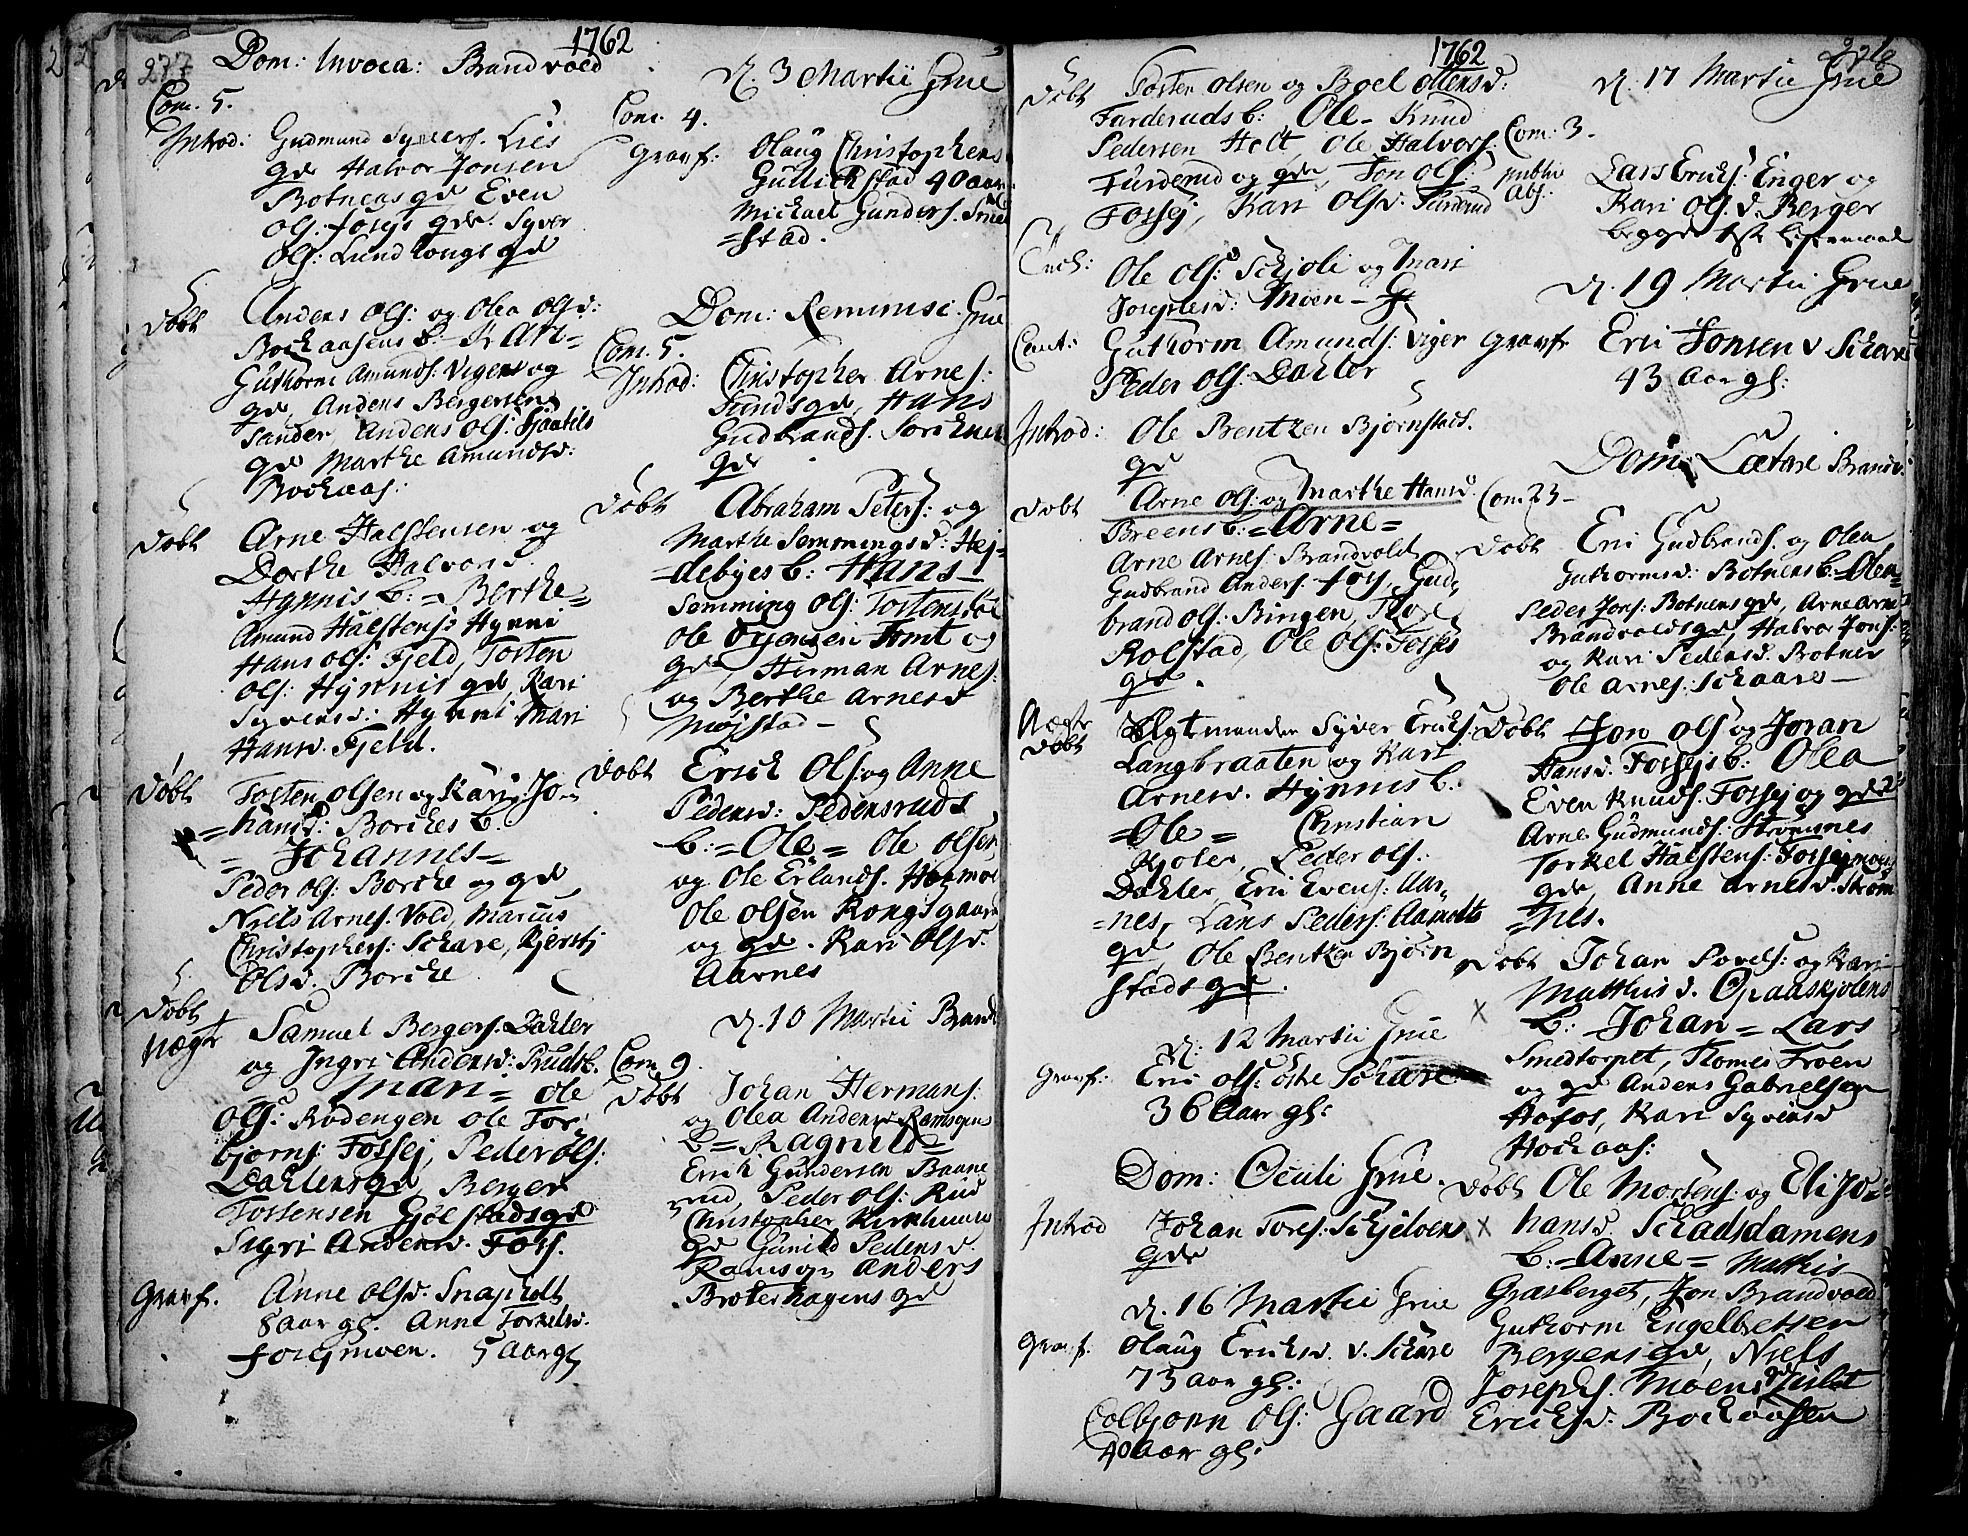 1762
277
Dom: Invoca: Brandvold
Com. 5.
Introd: Gudmund Syvers. Lies
gde Halvor Jonsen
Botneras gde Even
Ols: Fossis gde. Syver
Ols: Lundbongs gde
Døbt Anders Ols: og Olea Olsd:
Bochaasens b: Kari
Guthorm Amunds: Vigers og
gde, Anders Bergersen
Sander, Anders Ols: Kjærtils
gde Marthe Amundsd:
Bochaas:
Døbt Arne Halstensen og
Dorthe Halvorsd.
Hynnis b: = Berthe =
Amund Halstens: Hynni
Hans Ols: Fjeld, Tosten
Ols: Hynnis gde, Kari
Syversd: Hynni Mari
Hansd. Fjeld.
Døbt Tosten Olsen og Kari Jo-
= hansd: Borches b.
= Johannes =
Peder Ols: Borche og gde
Niels Arnes. Vold, Marius
Christophers: Schare, Kjersti
Olsd. Borche
Døbt
Nægr Samuel Bergers. Dahler
og Ingri Andersd: Ruds b.
= Mari = Ole
Ols: Rødengen Ole Tor-
bjorns: Fossej, Peder Ols:
Dahlers gde, Berger
Tostensen Gjølstads gde
Sigri Andersd. Foss.
Gravf. Anne Olsd. Snapholt
8 Aar gl. Anne Torkelsd.
Fossmoen. 5 Aar gl
D. 3 Martii Grue
Com. 4.
Gravf: Olaug Christophersd
Gullichstad 40 aar
Michael Gunders. Grue
= stad.
Dom: Reminisc: Grue
Com. 5.
Introd: Christopher Arnes:
Sunds gde, Hans
Gudbrands. Sorkner
gde
Døbt Abraham Peters: og
Marthe Semmingsd: Hej-
= debyes b: Hans =
Semming Ols: Tostensbøl
Ole Ørjensen Tomt og
gde, Herman Arnes.
og Berthe Arnesd
Møjstad -
Døbt Erich Ols og Anne
Pedersd: Pedersruds
b: = Ole = Ole Olsen
og Ole Erlands. Hermoe
Ole Olsen Kongsgaard
og gde. Kari Olsd.
Aarnes
D. 10 Martii Brandv
Com. 9.
Døbt Johan Hermans:
og Olea Andersd Ramsøens
b = Ragnild =
Erich Gundersen Baane
rud, Peder Ols: Rud
Christopher Kirkhuusa
gde Gunild Pedersd.
Ramsøen Anders
Broterhagens gde
1762
Døbt Tosten Olsen og Boel Olsensd:
Farderuds b: Ole - Knud
Pedersen Holt Ole Halvors:
Furderud og gde Jon Ols:
Fossej, Kari Olsd. Furderud
Cuch: Ole Ols: Schjoli og Mari
Josephsd: Moen - G
Caut: Guthorm Amunds: Viger
Peder Ols: Dahler
Introd: Ole Bentzen Bjørnstads.
gde
Døbt Arne Ols: og Marthe Hansd.
Breens b: = Arne =
Arne Arnes: Brandvold
Gudbrand Anders. Foss, Gud-
brand Ols: Bingen,
Rolstad, Ole Ols: Fosses
gde.
Nægr
Døbt Ægtmanden Syver Erichs:
Langbraaten og Kari
Arnesd. Hynnis b.
= Ole = Christian
Kjoler, Peder Ols.
Dahler, Eric Evens: Aar-
= nes, Lars Peders: Aamodts
gde, Ole Bentzen Bjørn
stads gde.
D: 12 Martii Grue
Gravf: Eric Ols: Schare
36 Aar gl:
Dom: Oculi Grue.
Introd Johan Tores: Schjelvens
gde
D. 16 Martii Grue
Gravf. Olaug Erichsd. v. Schare
73 aar gl:
Colbjørn Ols: Gaard
40 Aar gl:
D. 17 Martii Grue
Com: 3.
publ:
Abs: Lars Erichs: Enger og
Kari Ols. d. Berger
begge 1ste Lejermaal
D. 19 Martii Grue
Gravf Eric Jonsen v Schare
43 Aar gl:
Dom: Lætare Brandv:
Com. 23 -
Døbt Eric Gudbrands. og Olea
Guthormsd: Botners b: = Olea =
Peder Jons: Botners gde, Arne Arne
Brandvolds gde, Halvor Jons:
og Kari Pedersd. Botner
Ole Arnes: Schaare -
Døbt Jon Ols og Joran
Hansd. Fossejs b: Olea
Even Knuds. Fossej og gde
Arne Gudmunds: Strømnes
Torkel Halstens: Fossejmoens
gde, Anne Arnesd. Strøm
= nes.
Døbt Johan Povels: og Kari
Matthisd. Opaaskjolens
b: Johan = Lars
Smedtorpet, Thomes Froen
og gde Anders Gabrielsen
Hofos, Kari Syversd
Hochaas:
Døbt Ole Mortens: og Eli Jo-
hansd Schaasdamens
b: = Anne = Mathis
Græsberget, Jon Brandvold
Guthorm Engelbretsen
Bergers gde, Niels
Josephs. Moens gde
Erichsd: Bochaasen